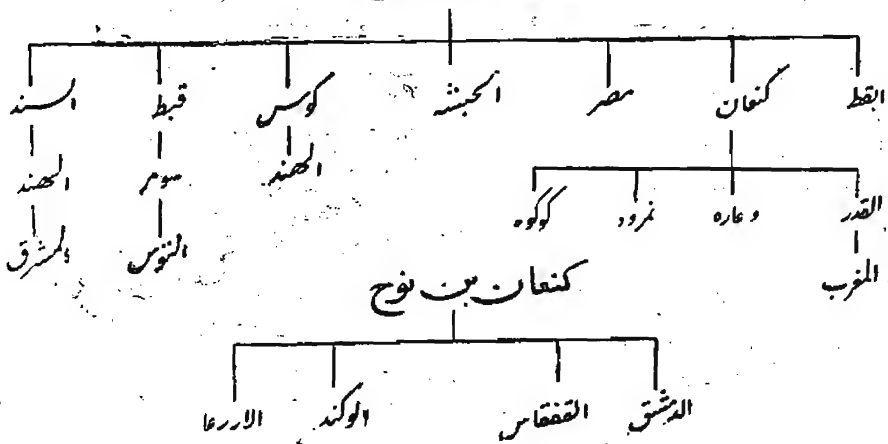 ابقط كنعان مصر الحبشه كوس قبط السند
القدر وعاره نمرود كوكوه الهند سومر الهند
المغرب النوس المشرق
كنعان بن نوح
الدمشق القفقاس الوكند الاررعا